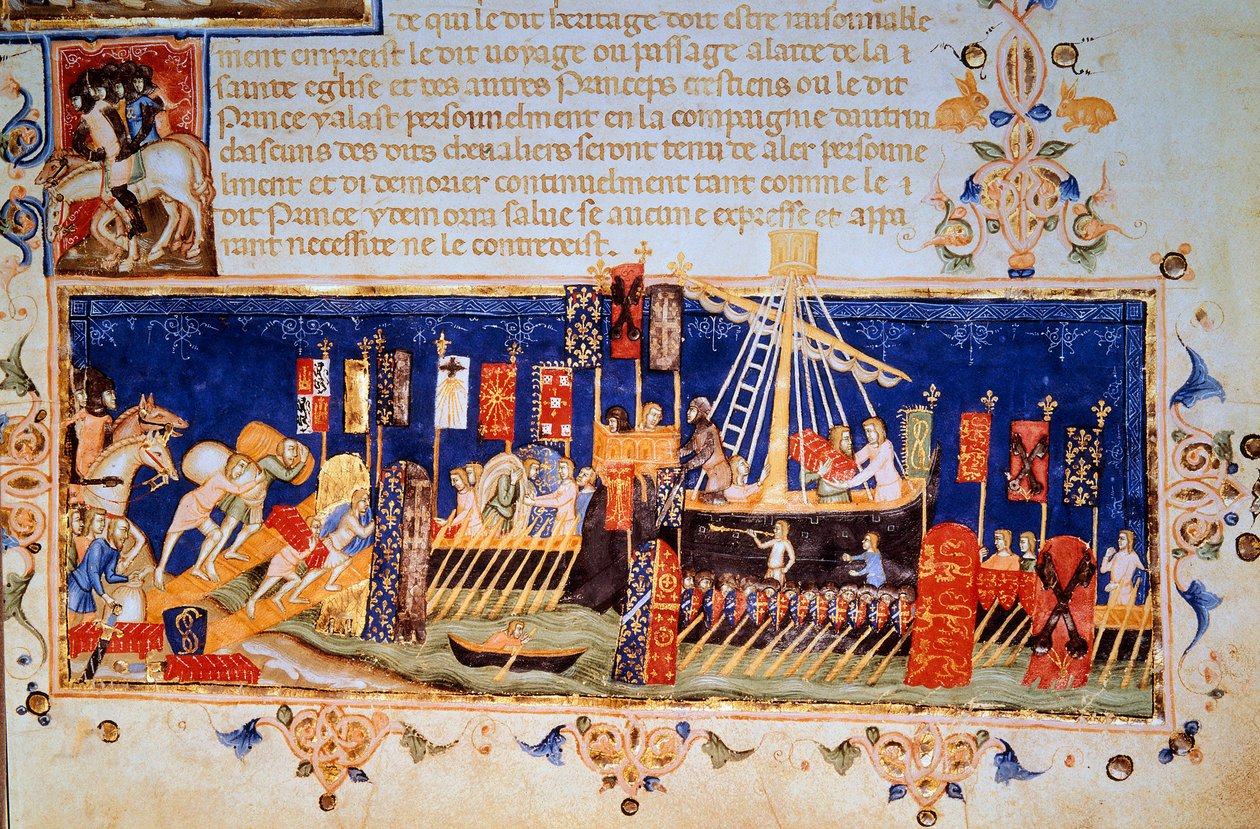 te qui le dit heritage doit estre raisonnable
ment empreist le dit uoyage ou passage a laide de la
sainte eglise et des autres Princeps crestiens ou le dit
Prince y alast personnelment en la compaignie dautrui
chascuns des dits cheualiers seront tenu de aler personne
lment et di demorer continuelment tant comme le
dit Prince y demorra salue se aucune expresse et appa
rant necessite ne le contredeist.